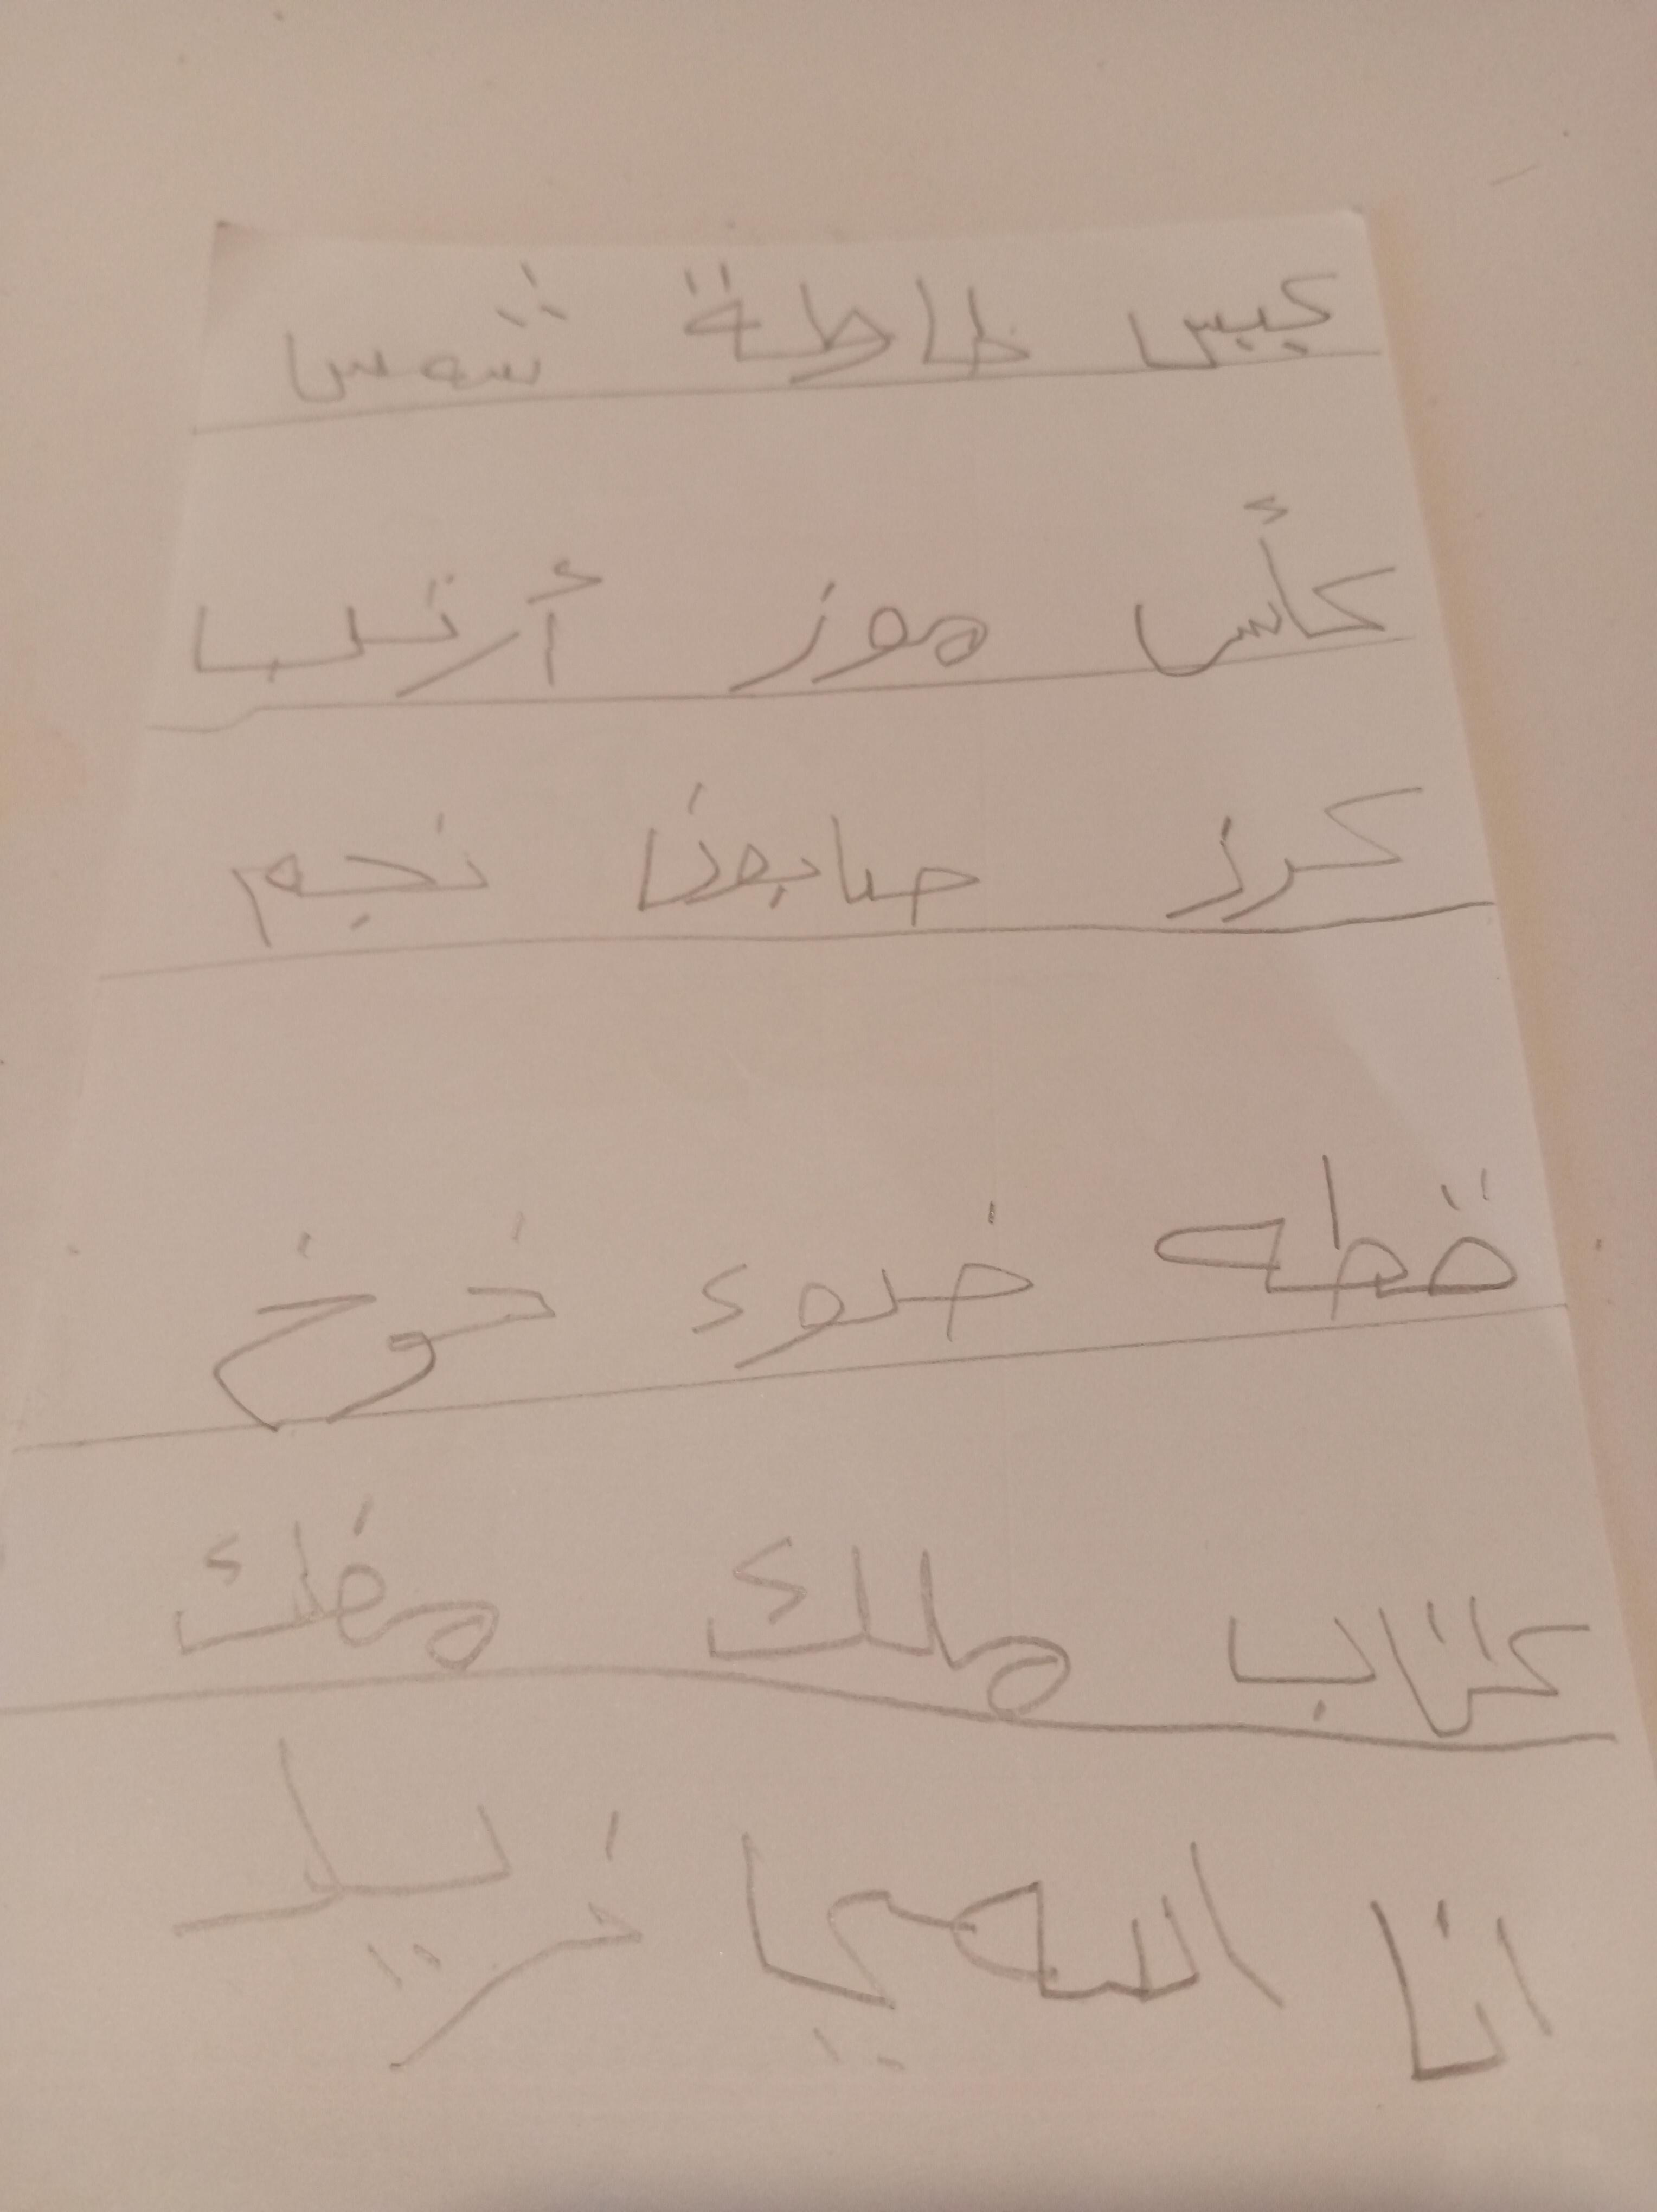 كيس طاطة شمس
كأس موز أرنب
كرز صابون نجم
قطه ضوء خوخ
كتاب ملك مفك
انا اسمي فريد